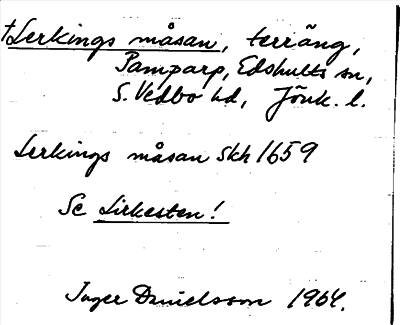 †Lerkings måsan, terräng,
Pamparp, Edshults sn,
S. Vedbo hd, Jönk. l.
Lerkings måsan skh 1659
Se Lirkesten!
Inger Danielsson 1964.